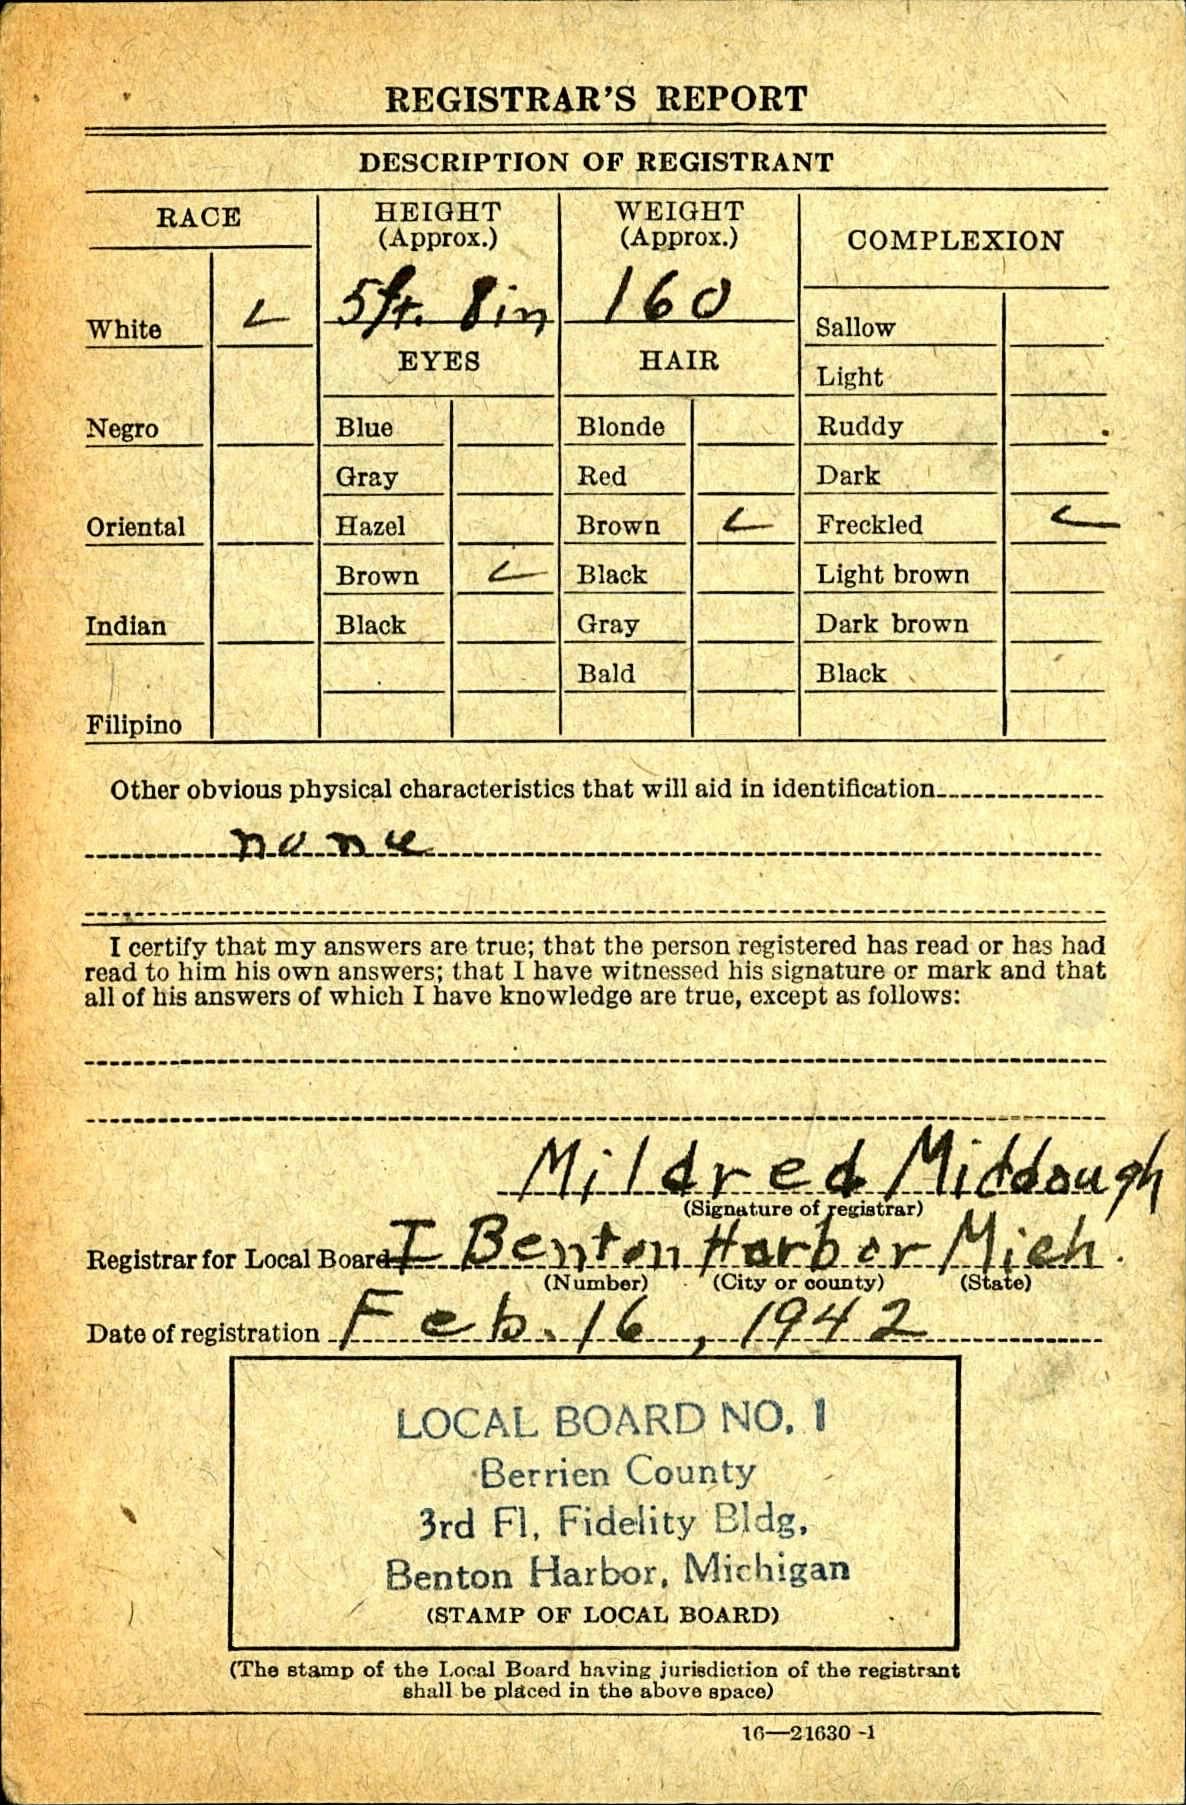 REGISTRAR'S REPORT
DESCRIPTION OF REGISTRANT
RACE
HEIGHT
(Approx.)
WEIGHT
(Approx.)
COMPLEXION
White ✓
5 ft. 8 in
160
Sallow
EYES
HAIR
Light
Negro
Blue
Blonde
Ruddy
Gray
Red
Dark
Oriental
Hazel
Brown ✓
Freckled ✓
Brown ✓
Black
Light brown
Indian
Black
Gray
Dark brown
Bald
Black
Filipino
Other obvious physical characteristics that will aid in identification
none
I certify that my answers are true; that the person registered has read or has had
read to him his own answers; that I have witnessed his signature or mark and that
all of his answers of which I have knowledge are true, except as follows:
Mildred Middaugh
(Signature of registrar)
Registrar for Local Board I Benton Harbor Mich.
(Number) (City or county) (State)
Date of registration Feb. 16, 1942
LOCAL BOARD NO. 1
Berrien County
3rd Fl, Fidelity Bldg.
Benton Harbor, Michigan
(STAMP OF LOCAL BOARD)
(The stamp of the Local Board having jurisdiction of the registrant
shall be placed in the above space)
16—21630-1